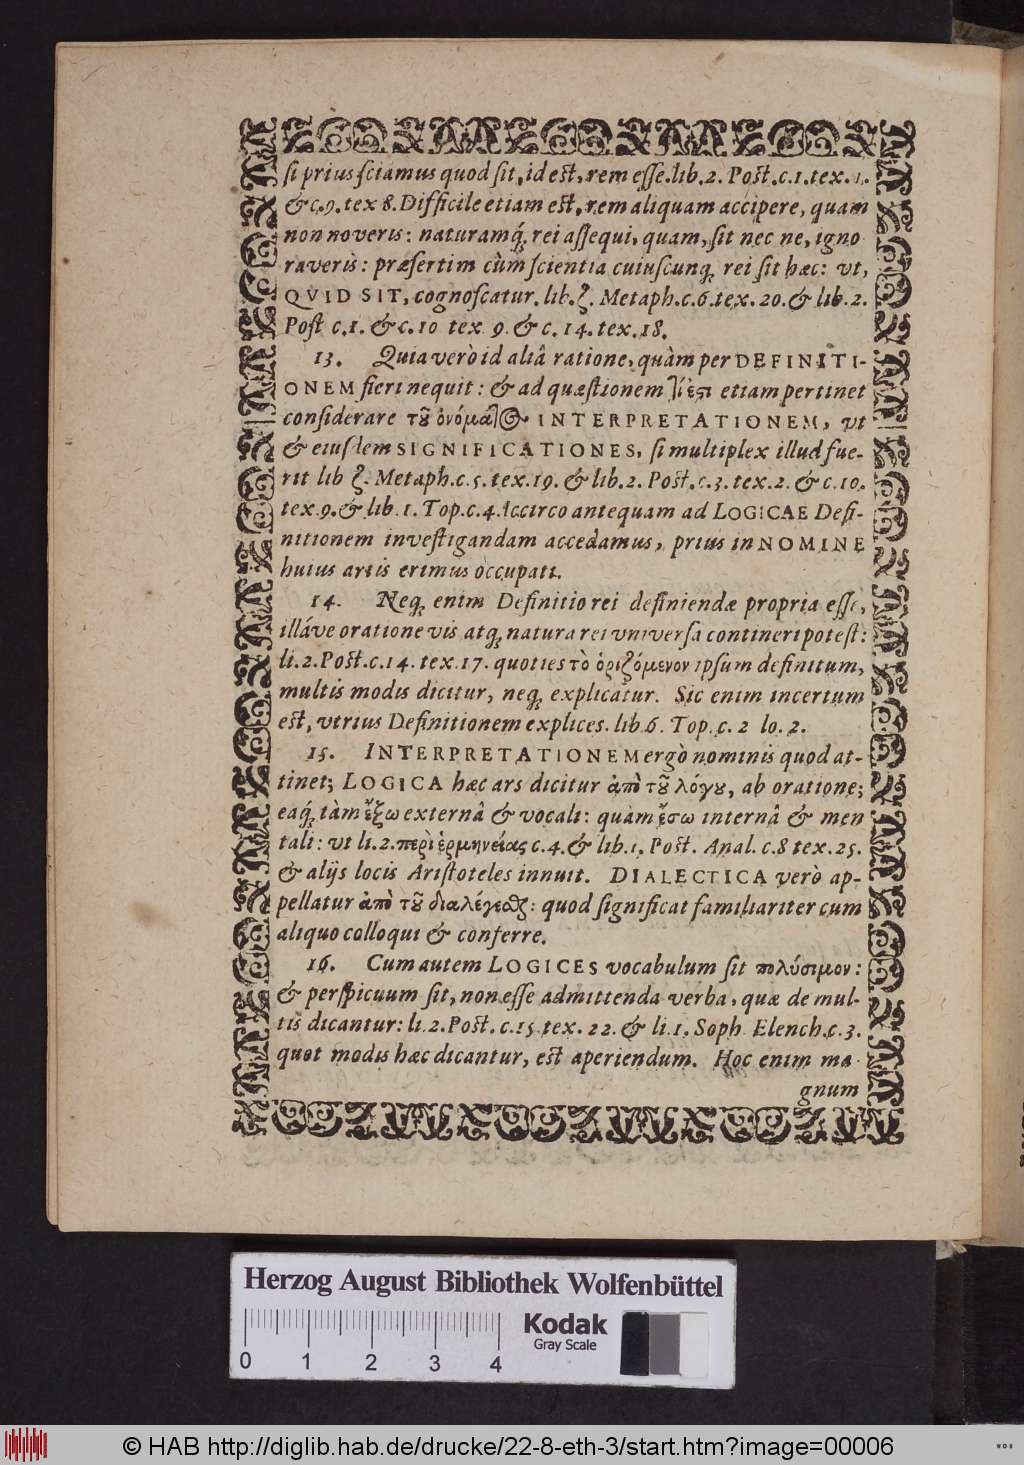 si prius sciamus quod sit, id est, rem esse. lib. 2. Post. c. 1. tex. 1.
& c. 9. tex 8. Difficile etiam est, rem aliquam accipere, quam
non noveris: naturamq́; rei assequi, quam, sit nec ne, igno
raveris: præsertim cùm scientia cuiuscunq; rei sit hæc: vt,
QVID SIT, cognoscatur. lib. ζ. Metaph. c. 6. tex. 20. & lib. 2.
Post c. 1. & c. 10 tex 9. & c. 14. tex. 18.
13. Quia verò id aliâ ratione, quàm per DEFINITI-
ONEM fieri nequit: & ad quæstionem τί ἐστι etiam pertinet
considerare τȣ͂ ὀνόματος INTERPRETATIONEM, vt
& eiusdem SIGNIFICATIONES, si multiplex illud fue-
rit lib ζ. Metaph. c. 5. tex. 19. & lib. 2. Post. c. 3. tex. 2. & c. 10.
tex. 9. & lib. 1. Top. c. 4. Iccirco antequam ad LOGICAE Defi-
nitionem investigandam accedamus, prius in NOMINE
huius artis erimus occupati.
14. Neq; enim Definitio rei definiendæ propria esse,
illáve oratione vis atq; natura rei vniversa contineri potest:
li. 2. Post. c. 14. tex. 17. quoties τὸ ὁριζόμενον ipsum definitum,
multis modis dicitur, neq; explicatur. Sic enim incertum
est, vtrius Definitionem explices. lib 6. Top. c. 2 lo. 2.
15. INTERPRETATIONEM ergò nominis quod at-
tinet; LOGICA hæc ars dicitur ἀπὸ τȣ͂ λόγȣ, ab oratione;
eaq́; tàm ἔξω externâ & vocali: quàm ἔσω internâ & men
tali: vt li. 2. περὶ ἑρμηνείας c. 4. & lib. 1. Post. Anal. c. 8 tex. 25.
& alijs locis Aristoteles innuit. DIALECTICA verò ap-
pellatur ἀπὸ τȣ͂ διαλέγεσθαι: quod significat familiariter cum
aliquo colloqui & conferre.
16. Cum autem LOGICES vocabulum sit πολύσιμον:
& perspicuum sit, non esse admittenda verba, quæ de mul-
tis dicantur: li. 2. Post. c. 15 tex. 22. & li. 1. Soph Elench. c. 3.
quot modis hæc dicantur, est aperiendum. Hoc enim ma
gnum
Herzog August Bibliothek Wolfenbüttel
Kodak
Gray Scale
0 1 2 3 4
© HAB http://diglib.hab.de/drucke/22-8-eth-3/start.htm?image=00006